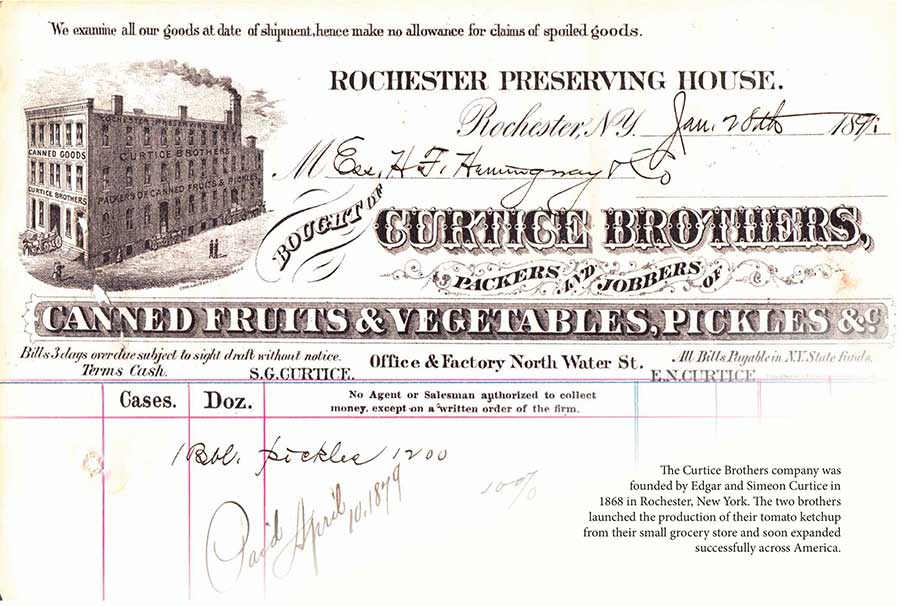 We examine all our goods at date of shipment, hence make no allowance for claims of spoiled goods.
ROCHESTER PRESERVING HOUSE.
Rochester, N.Y. Jan. 28th 187
CURTICE BROTHERS
CANNED GOODS
PACKERS OF CANNED FRUITS & PICKLES
CURTICE BROTHERS
M Ess. H. F. Hemingway & Co
BOUGHT OF
CURTICE BROTHERS,
PACKERS AND JOBBERS OF
CANNED FRUITS & VEGETABLES, PICKLES &c.
Bills 3 days overdue subject to sight draft without notice.
Terms Cash.
S.G. CURTICE.
Office & Factory North Water St.
All Bills Payable in N.Y. State Funds.
E.N. CURTICE.
Cases. Doz.
No Agent or Salesman authorized to collect
money, except on a written order of the firm.
1 Bbl. pickles 1200
Paid April 10, 1879
The Curtice Brothers company was
founded by Edgar and Simeon Curtice in
1868 in Rochester, New York. The two brothers
launched the production of their tomato ketchup
from their small grocery store and soon expanded
successfully across America.